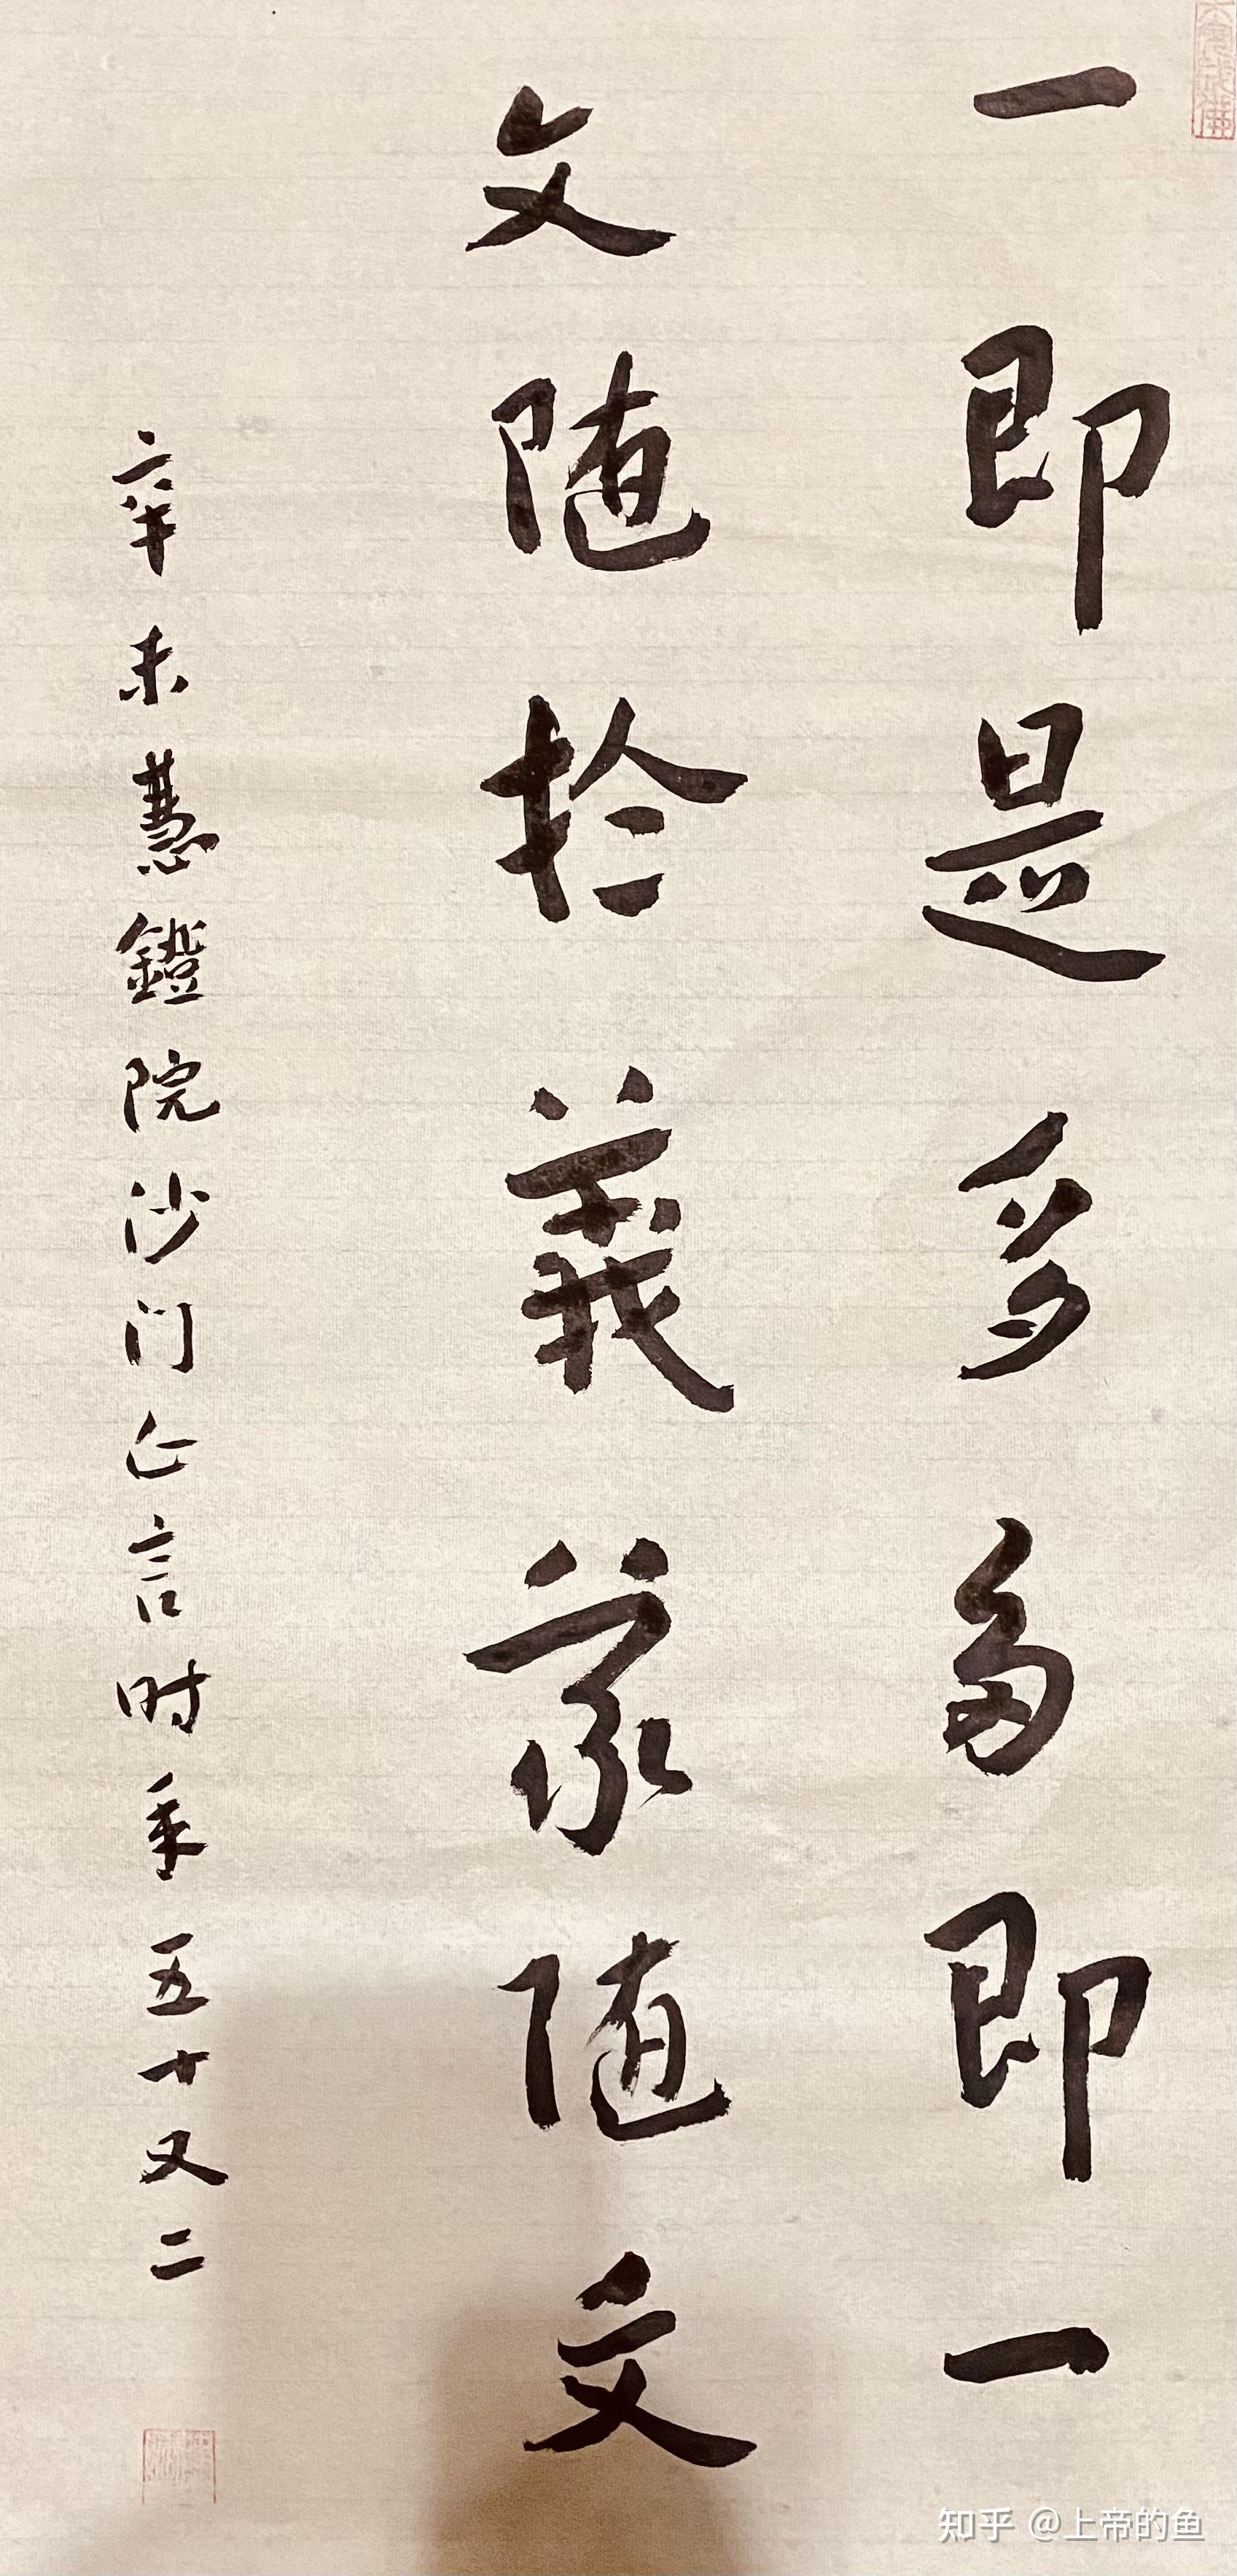 一即是多多即一
文随扵義義随文
辛未慧鐙院沙门亡言时年五十又二
知乎 @上帝的鱼